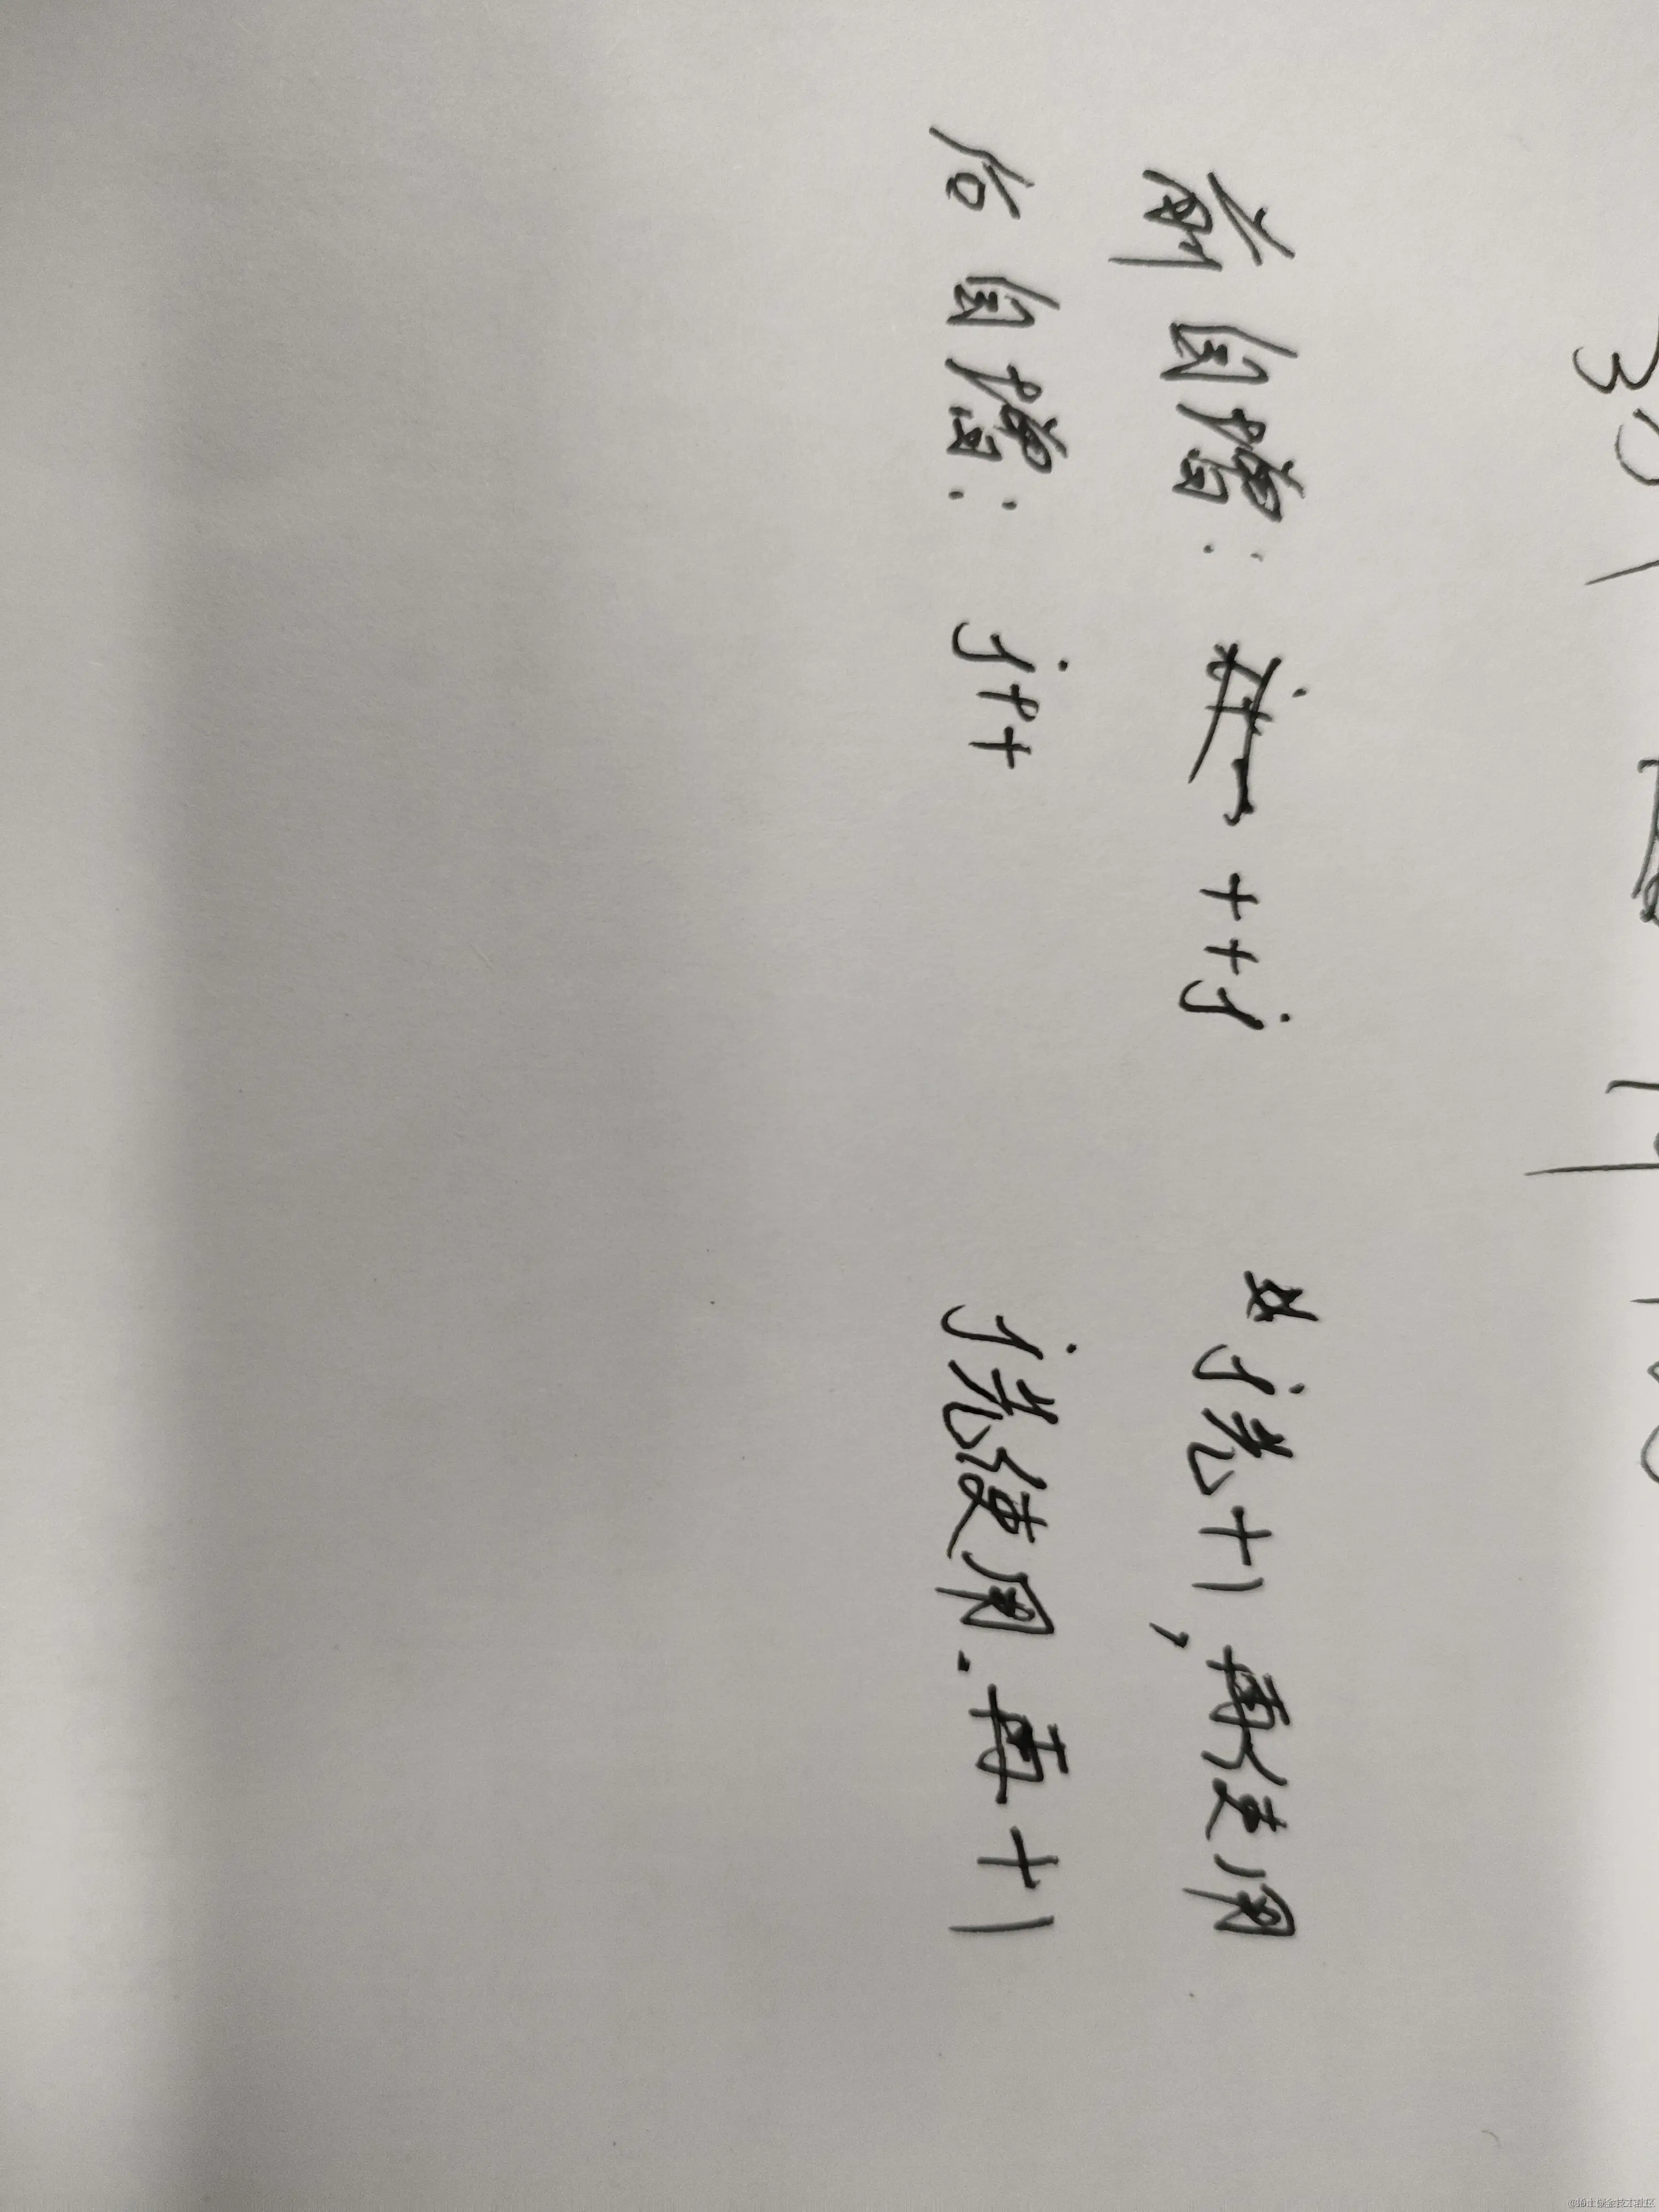 前自增: ++j j先+1,再使用
后自增: j++ j先使用.再+1
@稀土掘金技术社区